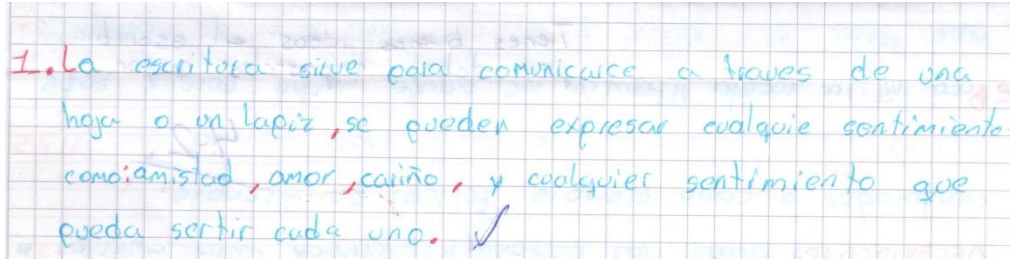 1. La escritura sirve para comunicarce a traves de una
hoja o un lapiz, se pueden expresar cualquie sentimiento
como: amistad, amor, cariño, y cualquier sentimiento que
pueda sertir cada uno.